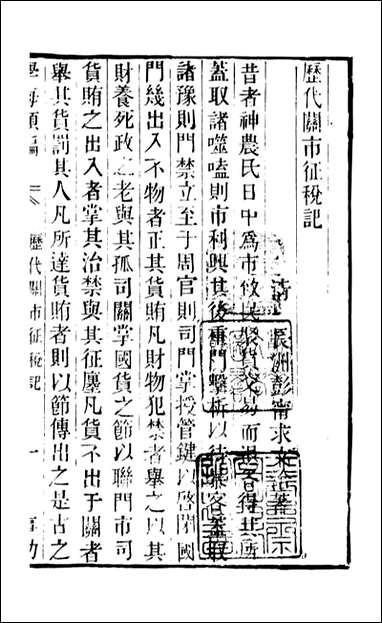 歷代關市征稅記
清 長洲彭甯求 著
昔者神農氏日中爲市致民聚貨交易而退各得其所
蓋取諸噬嗑則市利興其後重門擊柝以待暴客蓋取
諸豫則門禁立至于周官則司門掌授管鍵以啓閉國
門幾出入不物者正其貨賄凡財物犯禁者舉之以其
財養死政之老與其孤司關掌國貨之節以聯門市司
貨賄之出入者掌其治禁與其征廛凡貨不出于關者
舉其貨罰其人凡所達貨賄者則以節傳出之是古之
學海類編 歷代關市征稅記 一